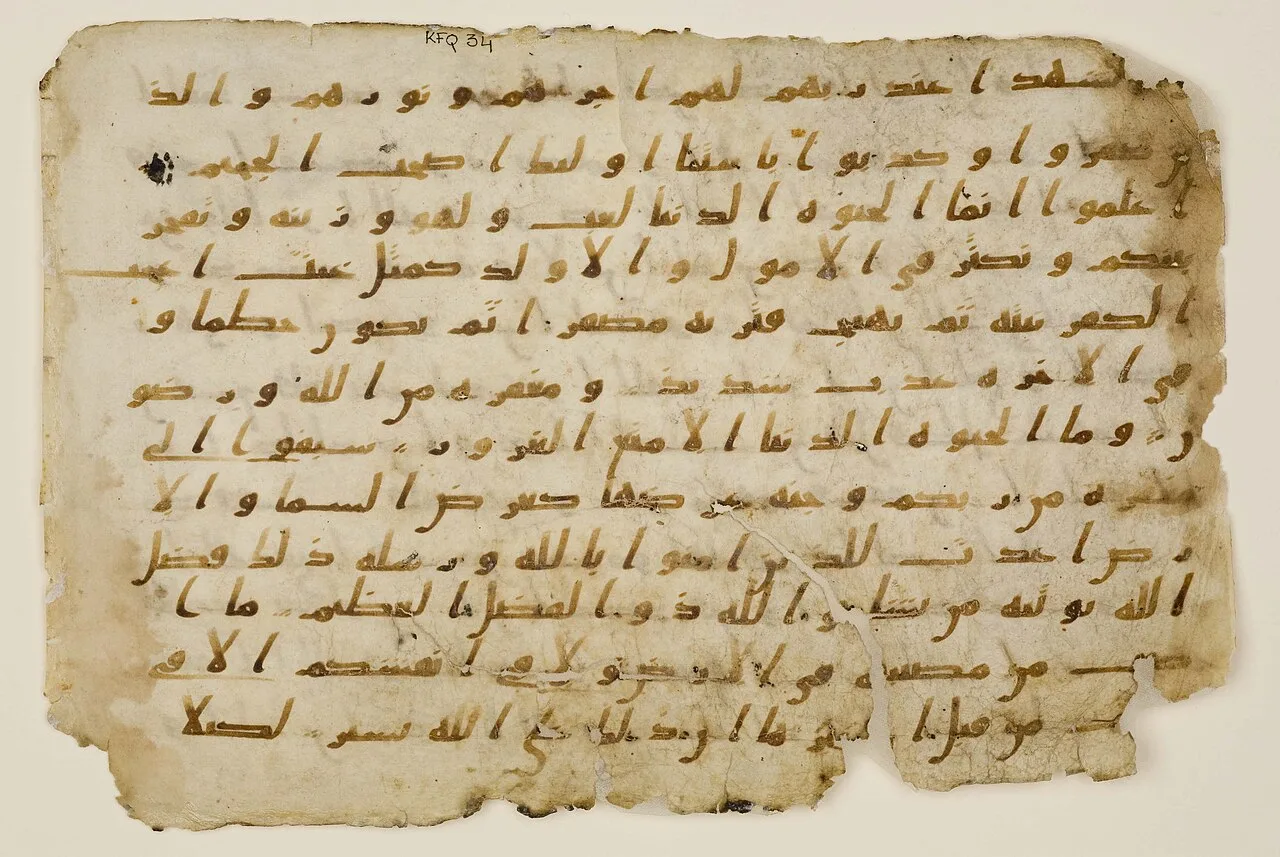 KFQ 34
الشهدا عند ربهم لهم اجرهم و نورهم والذ
ين كفروا وكذبوا بايتنا اوليك اصحب الجحيم
اعلموا انما الحيوة الدنيا لعب ولهو وزينة وتفخر
بينكم وتكثر في الامول والاولد كمثل غيث اعجب
الكفر نبته ثم يهيج فتريه مصفرا ثم يكون حطما و
في الاخرة عذب شديد ومغفرة من الله ورضو
ن وما الحيوة الدنيا الا متع الغرور سبقوا الى
مغفرة من ربكم وجنة عرضها كعرض السما والا
رض اعدت للذين امنوا بالله ورسله ذلك فضل
الله يوتيه من يشا والله ذو الفضل العظيم ما ا
صب من مصيبة في الارض ولا في انفسكم الا في
من قبل ان ذلك على الله يسير لكيلا